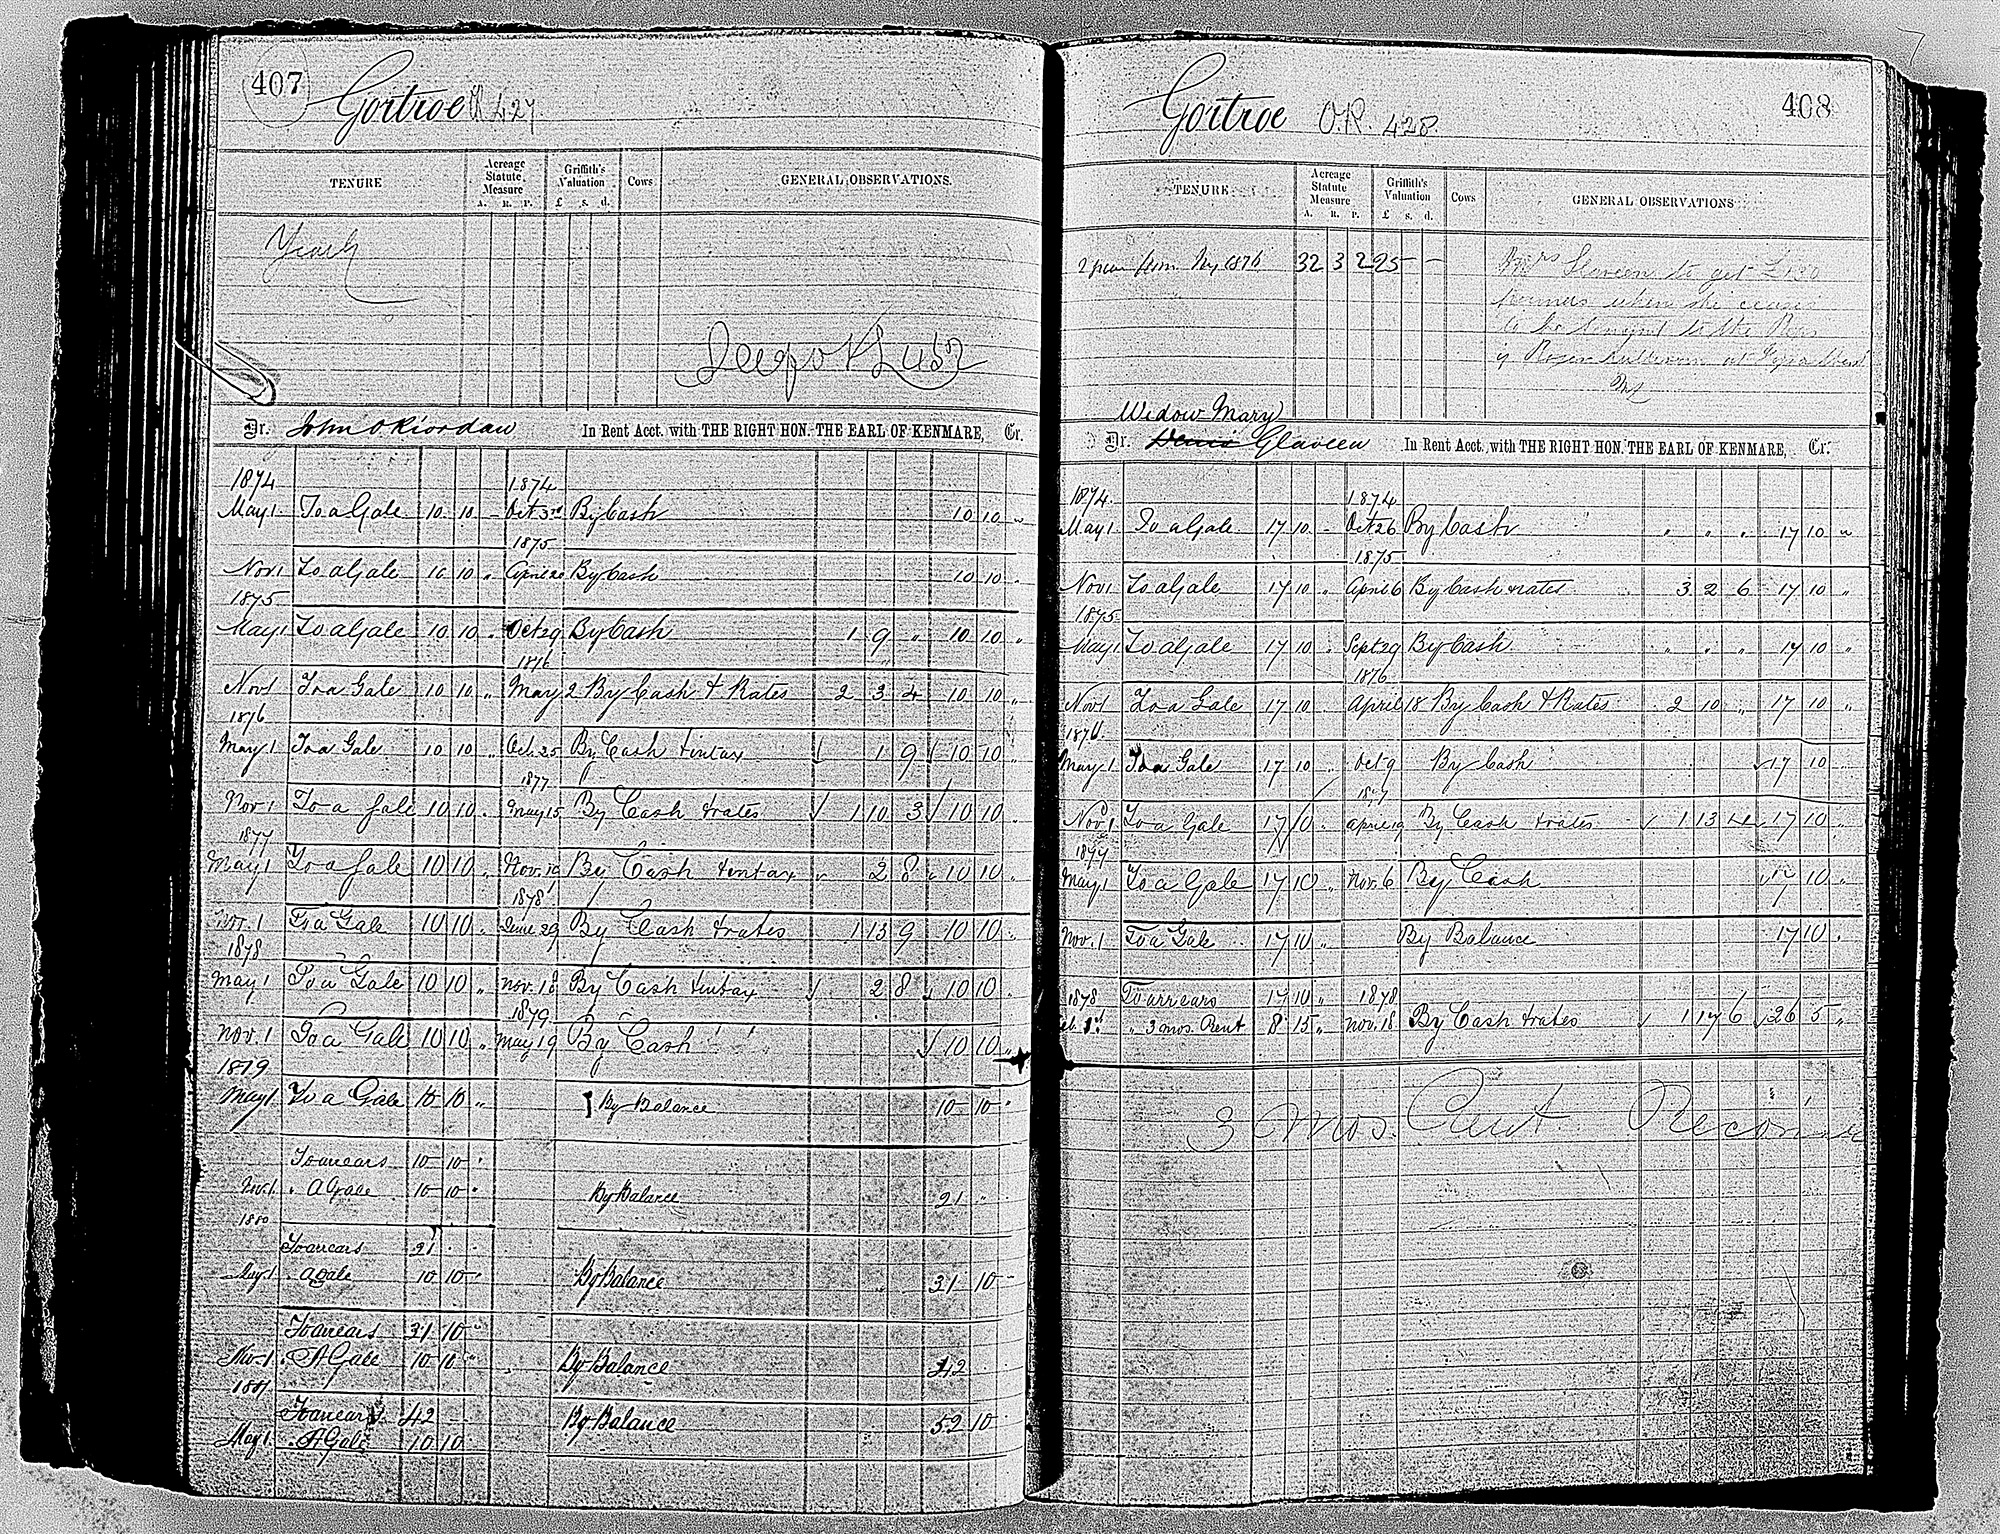 407 Gortroe OR 427
TENURE Acreage Statute Measure A. R. P. Griffith's Valuation £ s. d. Cows GENERAL OBSERVATIONS.
Yearly
Dr. John O'Riordan In Rent Acct. with THE RIGHT HON. THE EARL OF KENMARE, Cr.
1874 1874
May 1 To a Gale 10 10 - Oct 3rd By Cash 10 10 "
1875
Nov 1 To a Gale 10 10 " April 20 By Cash 10 10 "
1875
May 1 To a Gale 10 10 " Oct 29 By Cash 1 9 " 10 10 "
1876
Nov 1 To a Gale 10 10 " May 2 By Cash & Rates 2 3 4 10 10 "
1876
May 1 To a Gale 10 10 " Oct 25 By Cash & intax 1 9 10 10 "
1877
Nov 1 To a Gale 10 10 " May 15 By Cash & rates 1 10 3 10 10 "
1877
May 1 To a Gale 10 10 " Nov. By Cash & intax 2 8 10 10 "
1878
Nov. 1 To a Gale 10 10 " June 29 By Cash & rates 1 13 9 10 10 "
1878
May 1 To a Gale 10 10 " Nov. 18 By Cash & intax 2 8 10 10 "
1879
Nov. 1 To a Gale 10 10 " May 19 By Cash 10 10 "
1879
May 1 To a Gale 10 10 " By Balance 10 10 "
To arrears 10 10 "
Nov. 1 " A Gale 10 10 " By Balance 21 "
1880
To arrears 21
May 1 " a gale 10 10 " By Balance 31 10 -
To arrears 31 10 "
Nov. 1 " A Gale 10 10 " By Balance 42
1881
To arrears 42
May 1 " A Gale 10 10 By Balance 52 10
Gortroe O.R. 428 408
TENURE Acreage Statute Measure A. R. P. Griffith's Valuation £ s. d. Cows GENERAL OBSERVATIONS
2 years from May 1876 32 3 2 25 - -
Mrs Glaveen to get £130
when she ceases
to be tenant to the
Widow Mary
Dr. Denis Glaveen In Rent Acct. with THE RIGHT HON. THE EARL OF KENMARE, Cr.
1874 1874
May 1 To a Gale 17 10 - Oct 26 By Cash " " " 17 10 "
1875
Nov 1 To a Gale 17 10 " April 6 By Cash & rates 3 2 6 17 10 "
1875
May 1 To a Gale 17 10 " Sept 29 By Cash " " " 17 10 "
1876
Nov 1 To a Gale 17 10 " April 18 By Cash & Rates 2 10 " 17 10 "
1876
May 1 To a Gale 17 10 " Oct 9 By Cash 17 10 "
1877
Nov 1 To a Gale 17 10 " April 19 By Cash & rates 1 13 17 10 "
1877
May 1 To a Gale 17 10 " Nov. 6 By Cash 17 10 "
Nov. 1 To a Gale 17 10 " By Balance 17 10 "
1878 To arrears 17 10 " 1878
Feb. 1st " 3 mos. Rent 8 15 " Nov. 18 By Cash & rates 1 17 6 26 5 "
3 Mos. Rent